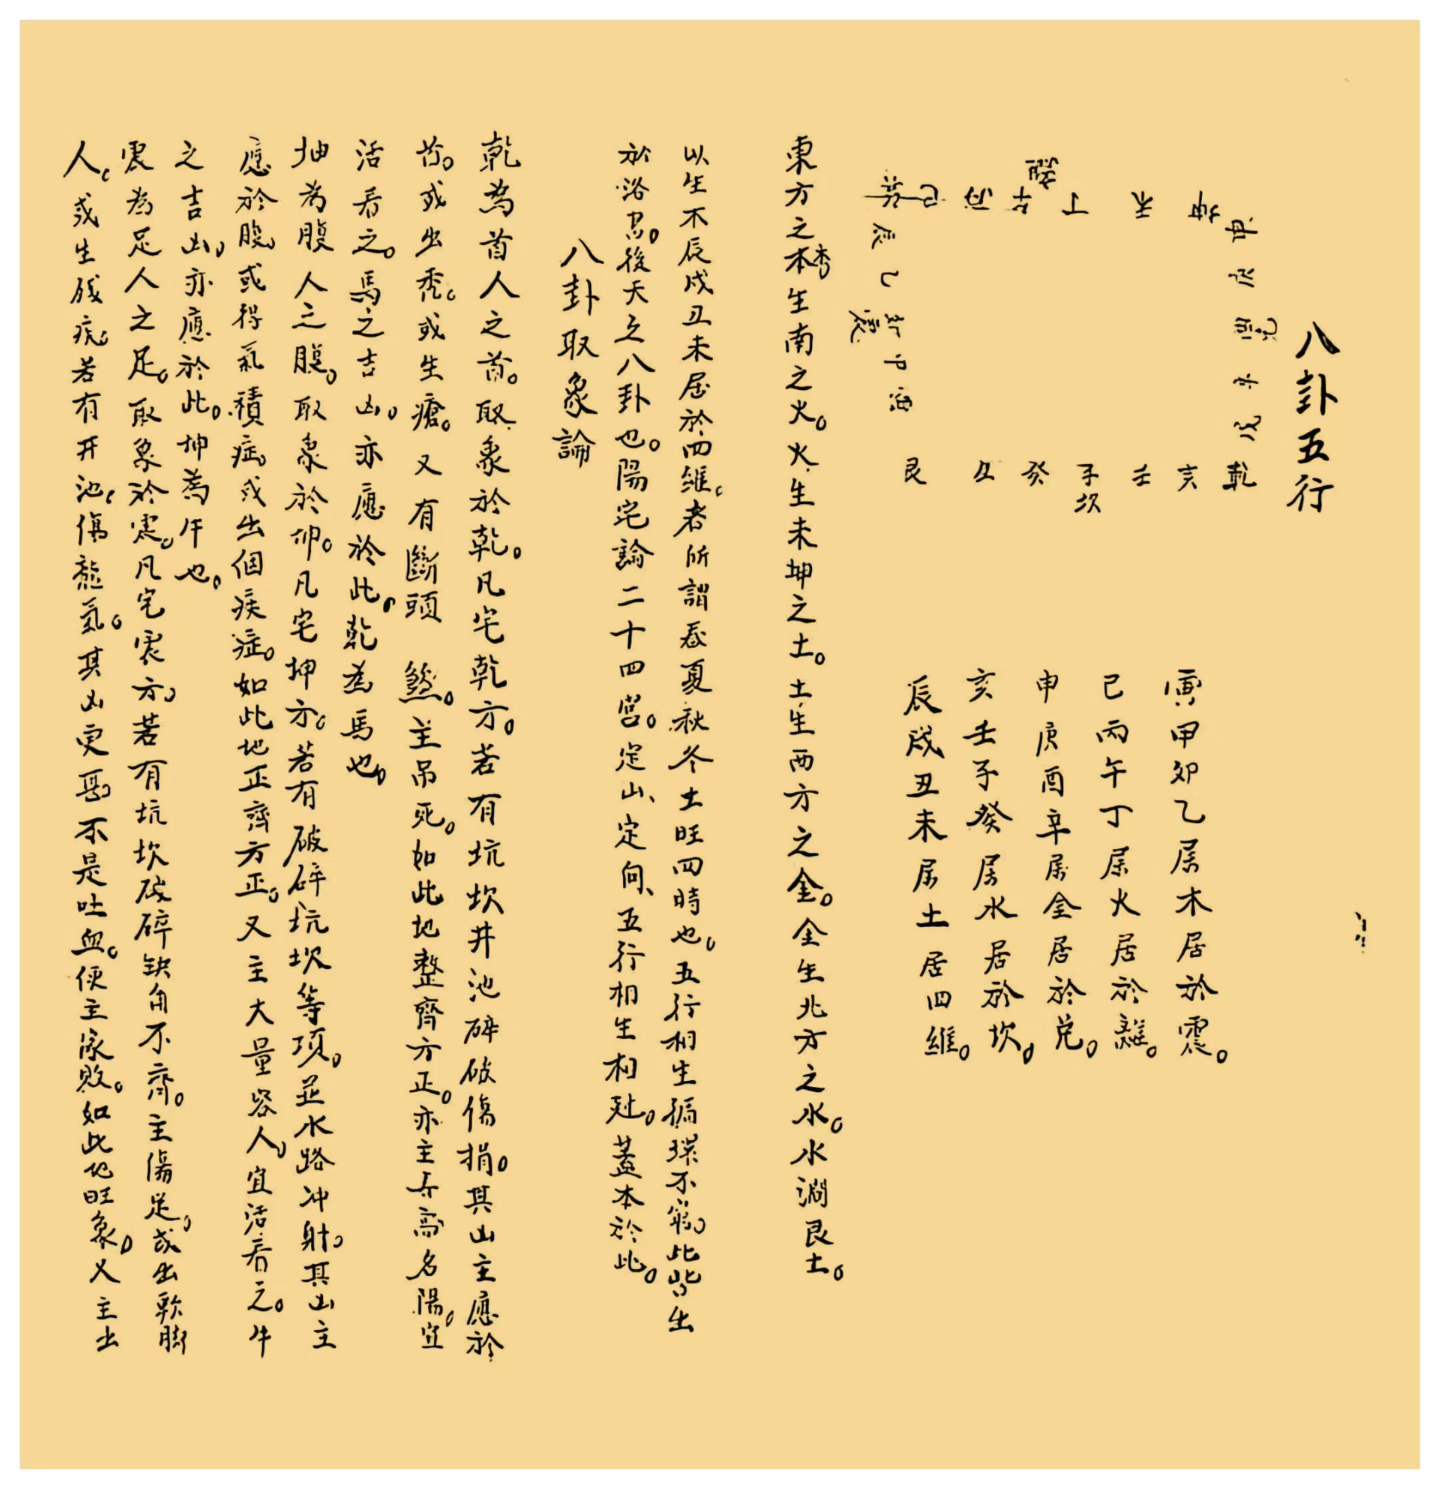 八卦五行
坤 未 丁 午 丙 巳 巽
離
申 庚 酉 辛 戌
兌
辰 乙 卯 甲 寅
震
乾 亥 壬 子 癸 丑 艮
坎
寅甲卯乙居木居於震。
巳丙午丁居火居於離。
申庚酉辛居金居於兌。
亥壬子癸居水居於坎。
辰戌丑未居土居四維。
東方之木生南之火。火生未坤之土。土生西方之金。金生北方之水。水澗艮土。
以生不辰戌丑未居於四維。者所謂春夏秋冬土旺四時也。五行相生循環不窮。此皆出
於洛書。後天之八卦也。陽宅論二十四宮。定山、定向、五行相生相尅。蓋本於此。
八卦取象論
乾為首人之首。取象於乾。凡宅乾方。若有坑坎井池碎破傷損。其凶主應於
首。或出禿。或生瘡。又有斷頭 煞。主吊死。如此地整齊方正。亦主
名陽。宜
活看之。馬之吉凶。亦應於此。乾為馬也。
坤為腹人之腹。取象於坤。凡宅坤方。若有破碎坑坎等項。並水路冲射。其凶主
應於腹。或得氣積症。或出個疾症。如此地正齊方正。又主大量容人。宜活看之。牛
之吉凶。亦應於此。坤為牛也。
震為足人之足。取象於震。凡宅震方。若有坑坎破碎缺角不齊。主傷足。或出軟脚
人。或生殘疾。若有开池。傷龍氣。其凶更甚。不是吐血。便主家敗。如此地旺象。又主出